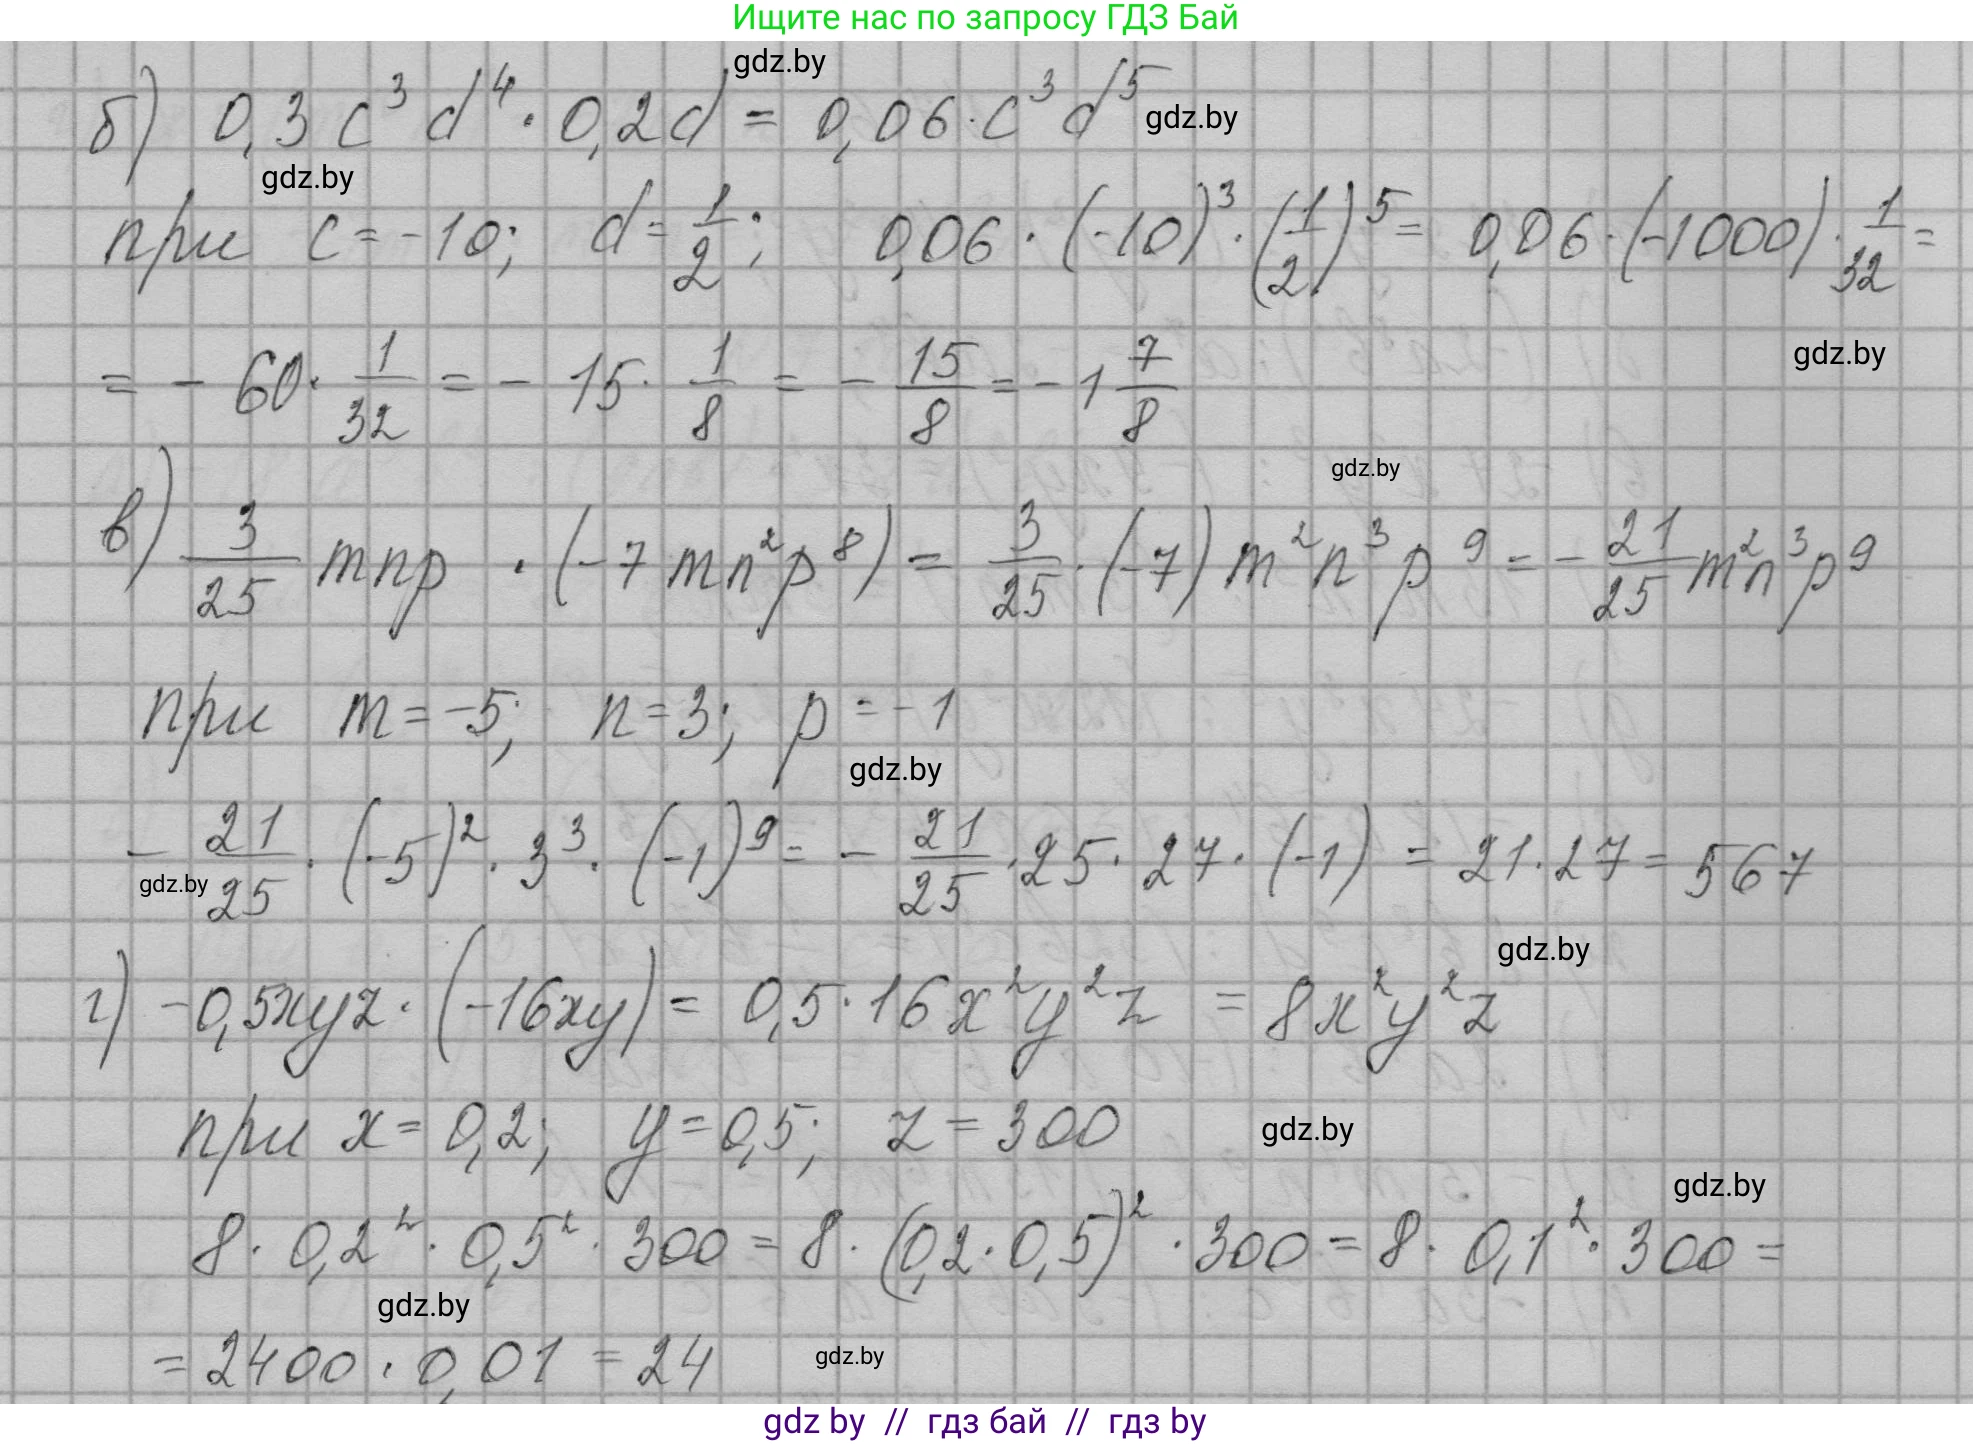 Ищите нас по запросу ГДЗ Бай
gdz.by
б) 0,3 c³ d⁴ · 0,2d = 0,06 · c³ d⁵
gdz.by
gdz.by
при c = -10; d = 1/2; 0,06 · (-10)³ · (1/2)⁵ = 0,06 · (-1000) · 1/32 =
gdz.by
= - 60 · 1/32 = - 15 · 1/8 = - 15/8 = - 1 7/8
gdz.by
в) 3/25 mnp · (-7 mn²p⁸) = 3/25 · (-7) m²n³p⁹ = - 21/25 m²n³p⁹
при m = -5; n = 3; p = -1
gdz.by
- 21/25 · (-5)² · 3³ · (-1)⁹ = - 21/25 · 25 · 27 · (-1) = 21 · 27 = 567
gdz.by
gdz.by
г) -0,5xyz · (-16xy) = 0,5 · 16x²y²z = 8x²y²z
при x = 0,2; y = 0,5; z = 300
gdz.by
gdz.by
8 · 0,2² · 0,5² · 300 = 8 · (0,2 · 0,5)² · 300 = 8 · 0,1² · 300 =
gdz.by
= 2400 · 0,01 = 24
gdz.by
gdz by // гдз бай // гдз by